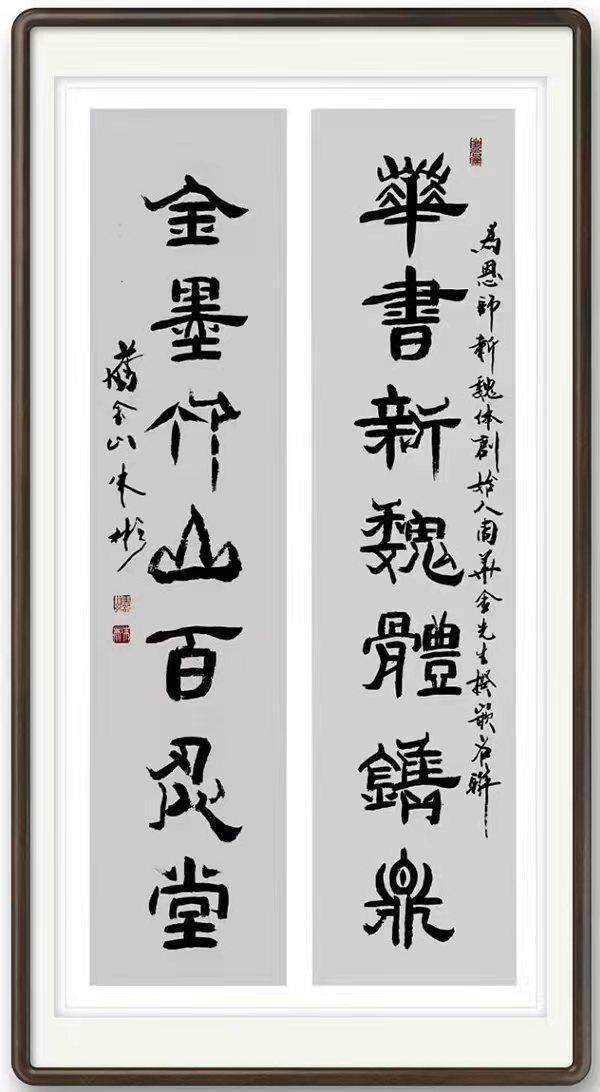 華書新魏體鐫鼎
為恩師新魏体創始人周華金先生撰嵌名聯
金墨竹山百忍堂
舊金山朱彬